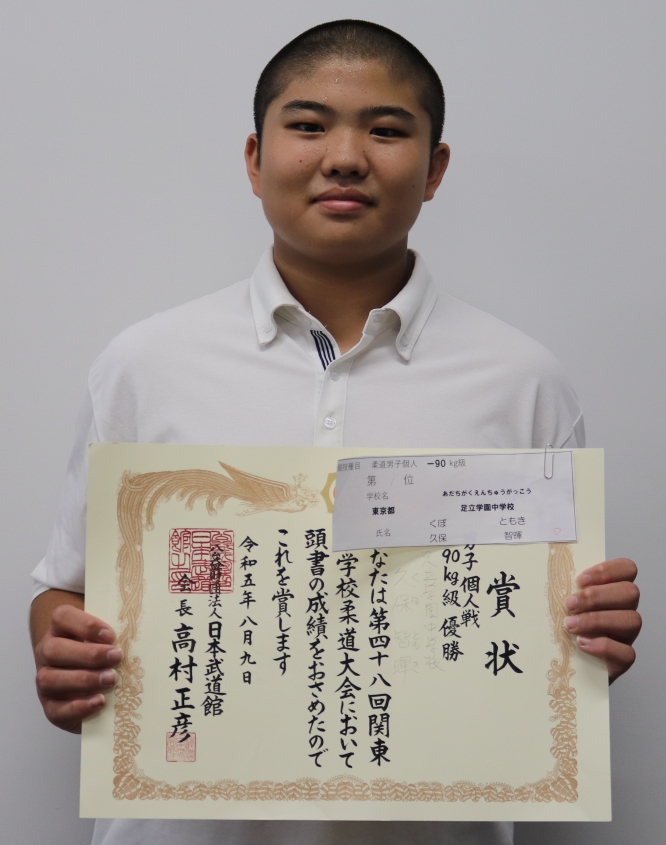 競技種目 柔道男子個人 －90 kg級
第 / 位
学校名 あだちがくえんちゅうがっこう
東京都 足立学園中学校
くぼ ともき
氏名 久保 智暉
賞状
子個人戦
90kg級 優勝
なたは第四十八回関東
学校柔道大会において
頭書の成績をおさめたので
これを賞します
令和五年八月九日
公益財団法人日本武道館
会長 高村正彦